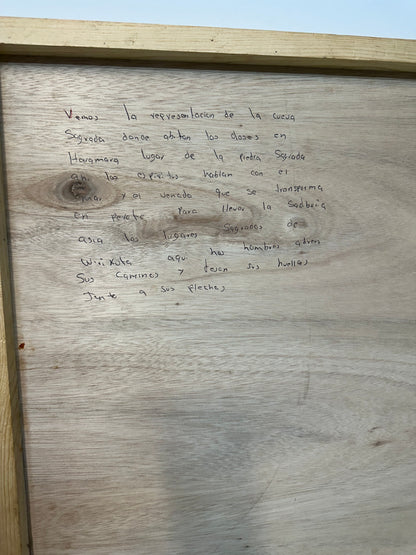 Vemos la representacion de la cueva
Sagrada donde abitan los dioses en
Hauamara lugar de la piedra Sagrada
ahi los espiritus hablan con el
y el venado que se transforma
en peyote para llevar la Sabiduria
asia los lugares Sagrados de
Wirikuta aqui los hombres abren
Sus Caminos y dejan sus huellas
Junto a sus flechas